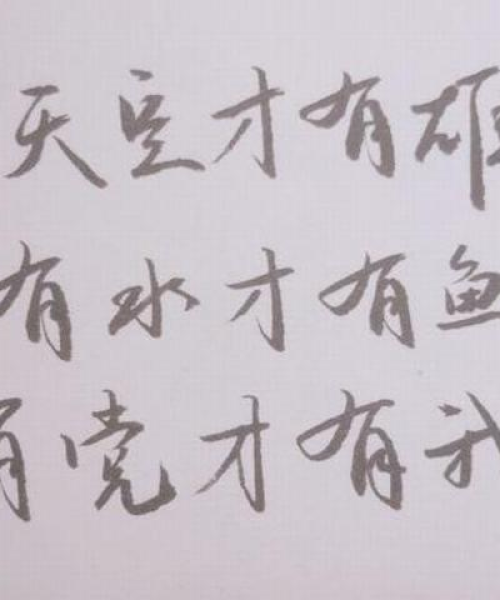 天空才有雄
有水才有鱼
有党才有我